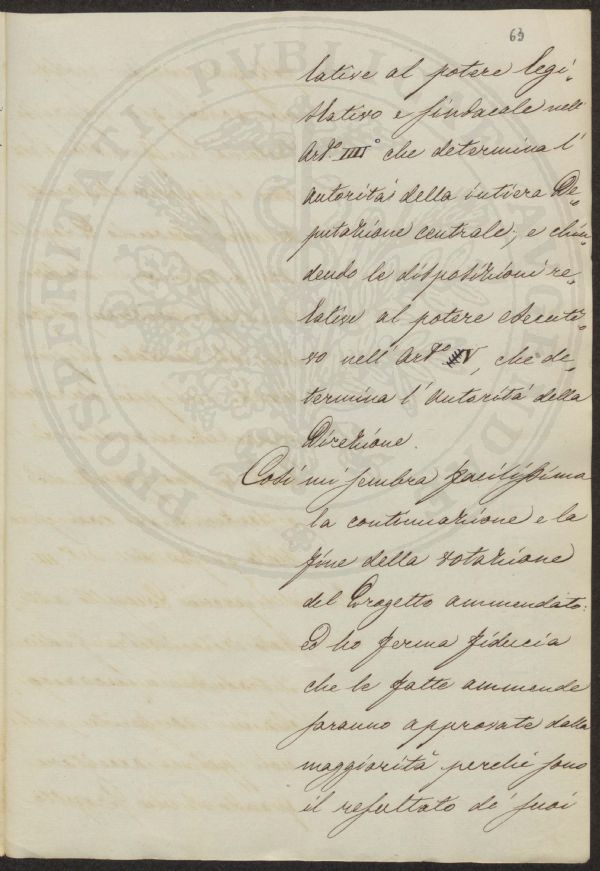 63
lative al potere legi„
slativo e sindacale nell'
Art.º IIII° che determina l'
autorità della intiera De„
putazione centrale; e chiu„
dendo le disposizioni re„
lative al potere esecuti„
vo nell'Art.º V, che de„
termina l'Autorità della
Direzione.
Così mi sembra facilissima
la continuazione e la
fine della votazione
del Progetto ammendato:
ed ho ferma fiducia
che le fatte ammende
saranno approvate dalla
maggiorità perché sono
il resultato de' suoi
PROSPERITATI PUBLICAE